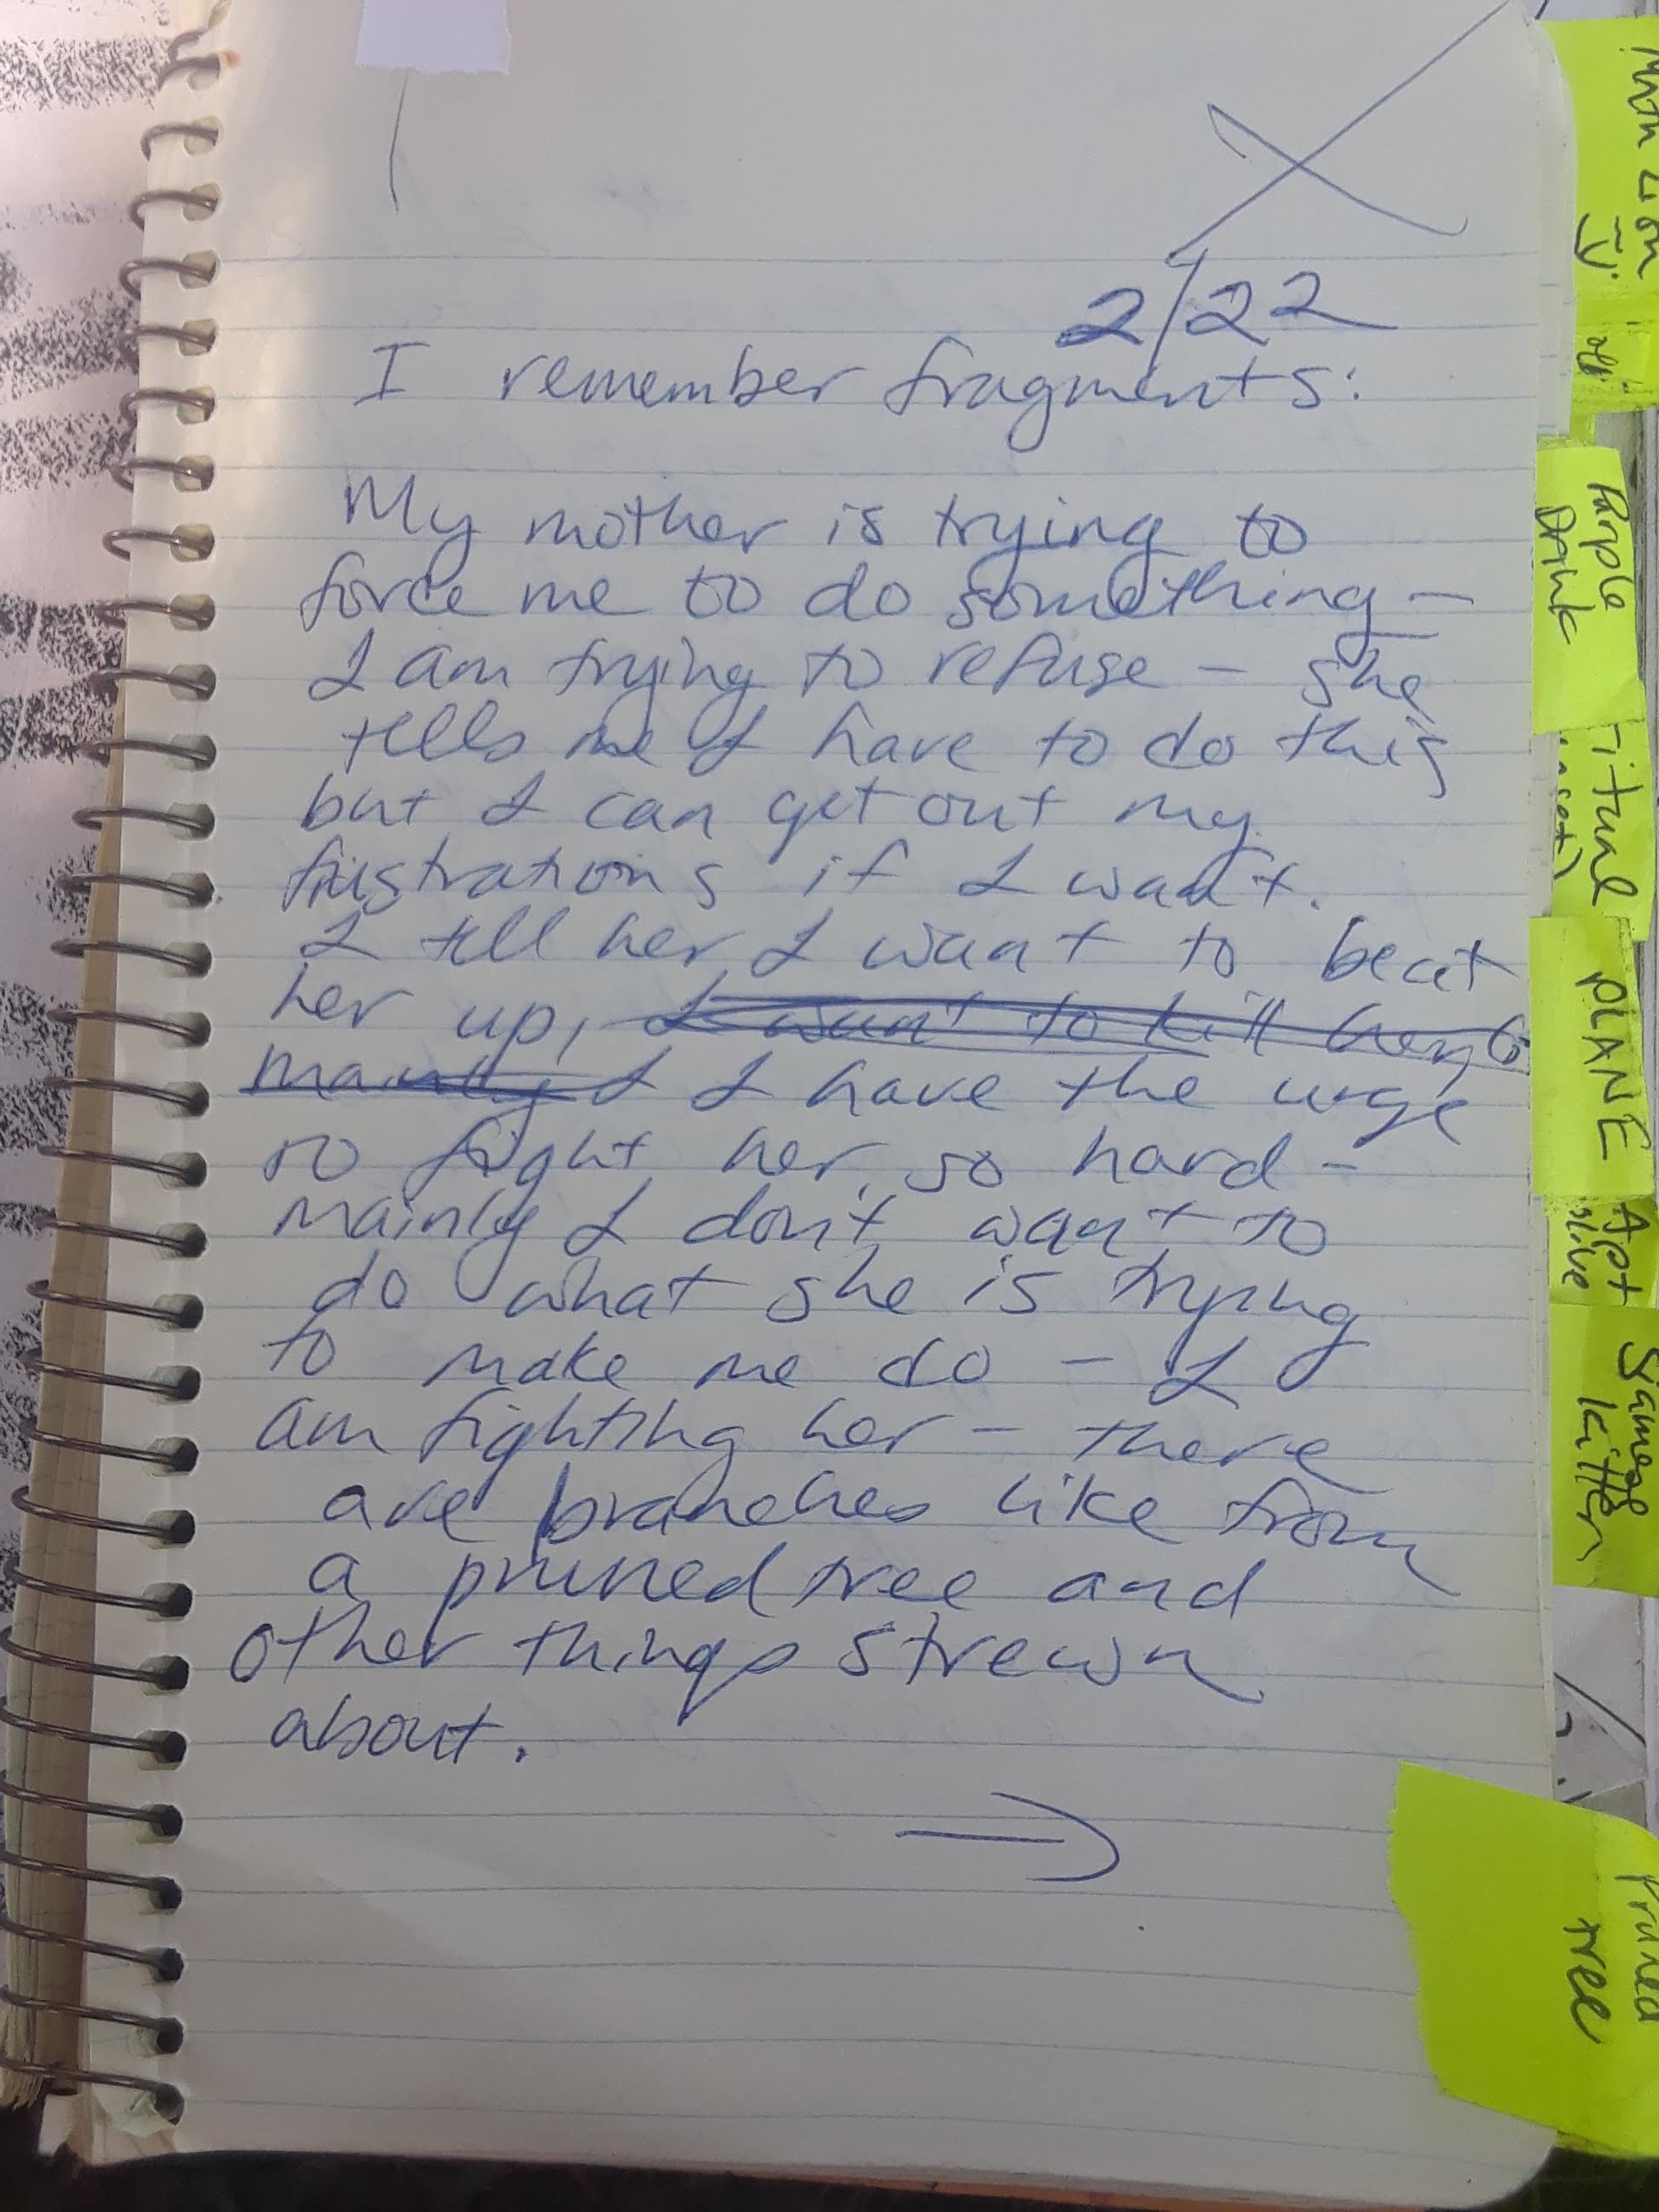 2/22
I remember fragments:
My mother is trying to
force me to do something -
I am trying to refuse - she
tells me I have to do this
but I can get out my
frustrations if I want.
I tell her I want to beat
her up, I want to kill her,
mainly I I have the urge
to fight her so hard -
mainly I don't want to
do what she is trying
to make me do - I
am fighting her - there
are branches like from
a pruned tree and
other things strewn
about.
→
Purple
Drink
PLANE
Apt
olive
Siamese
kitten
Pruned
tree